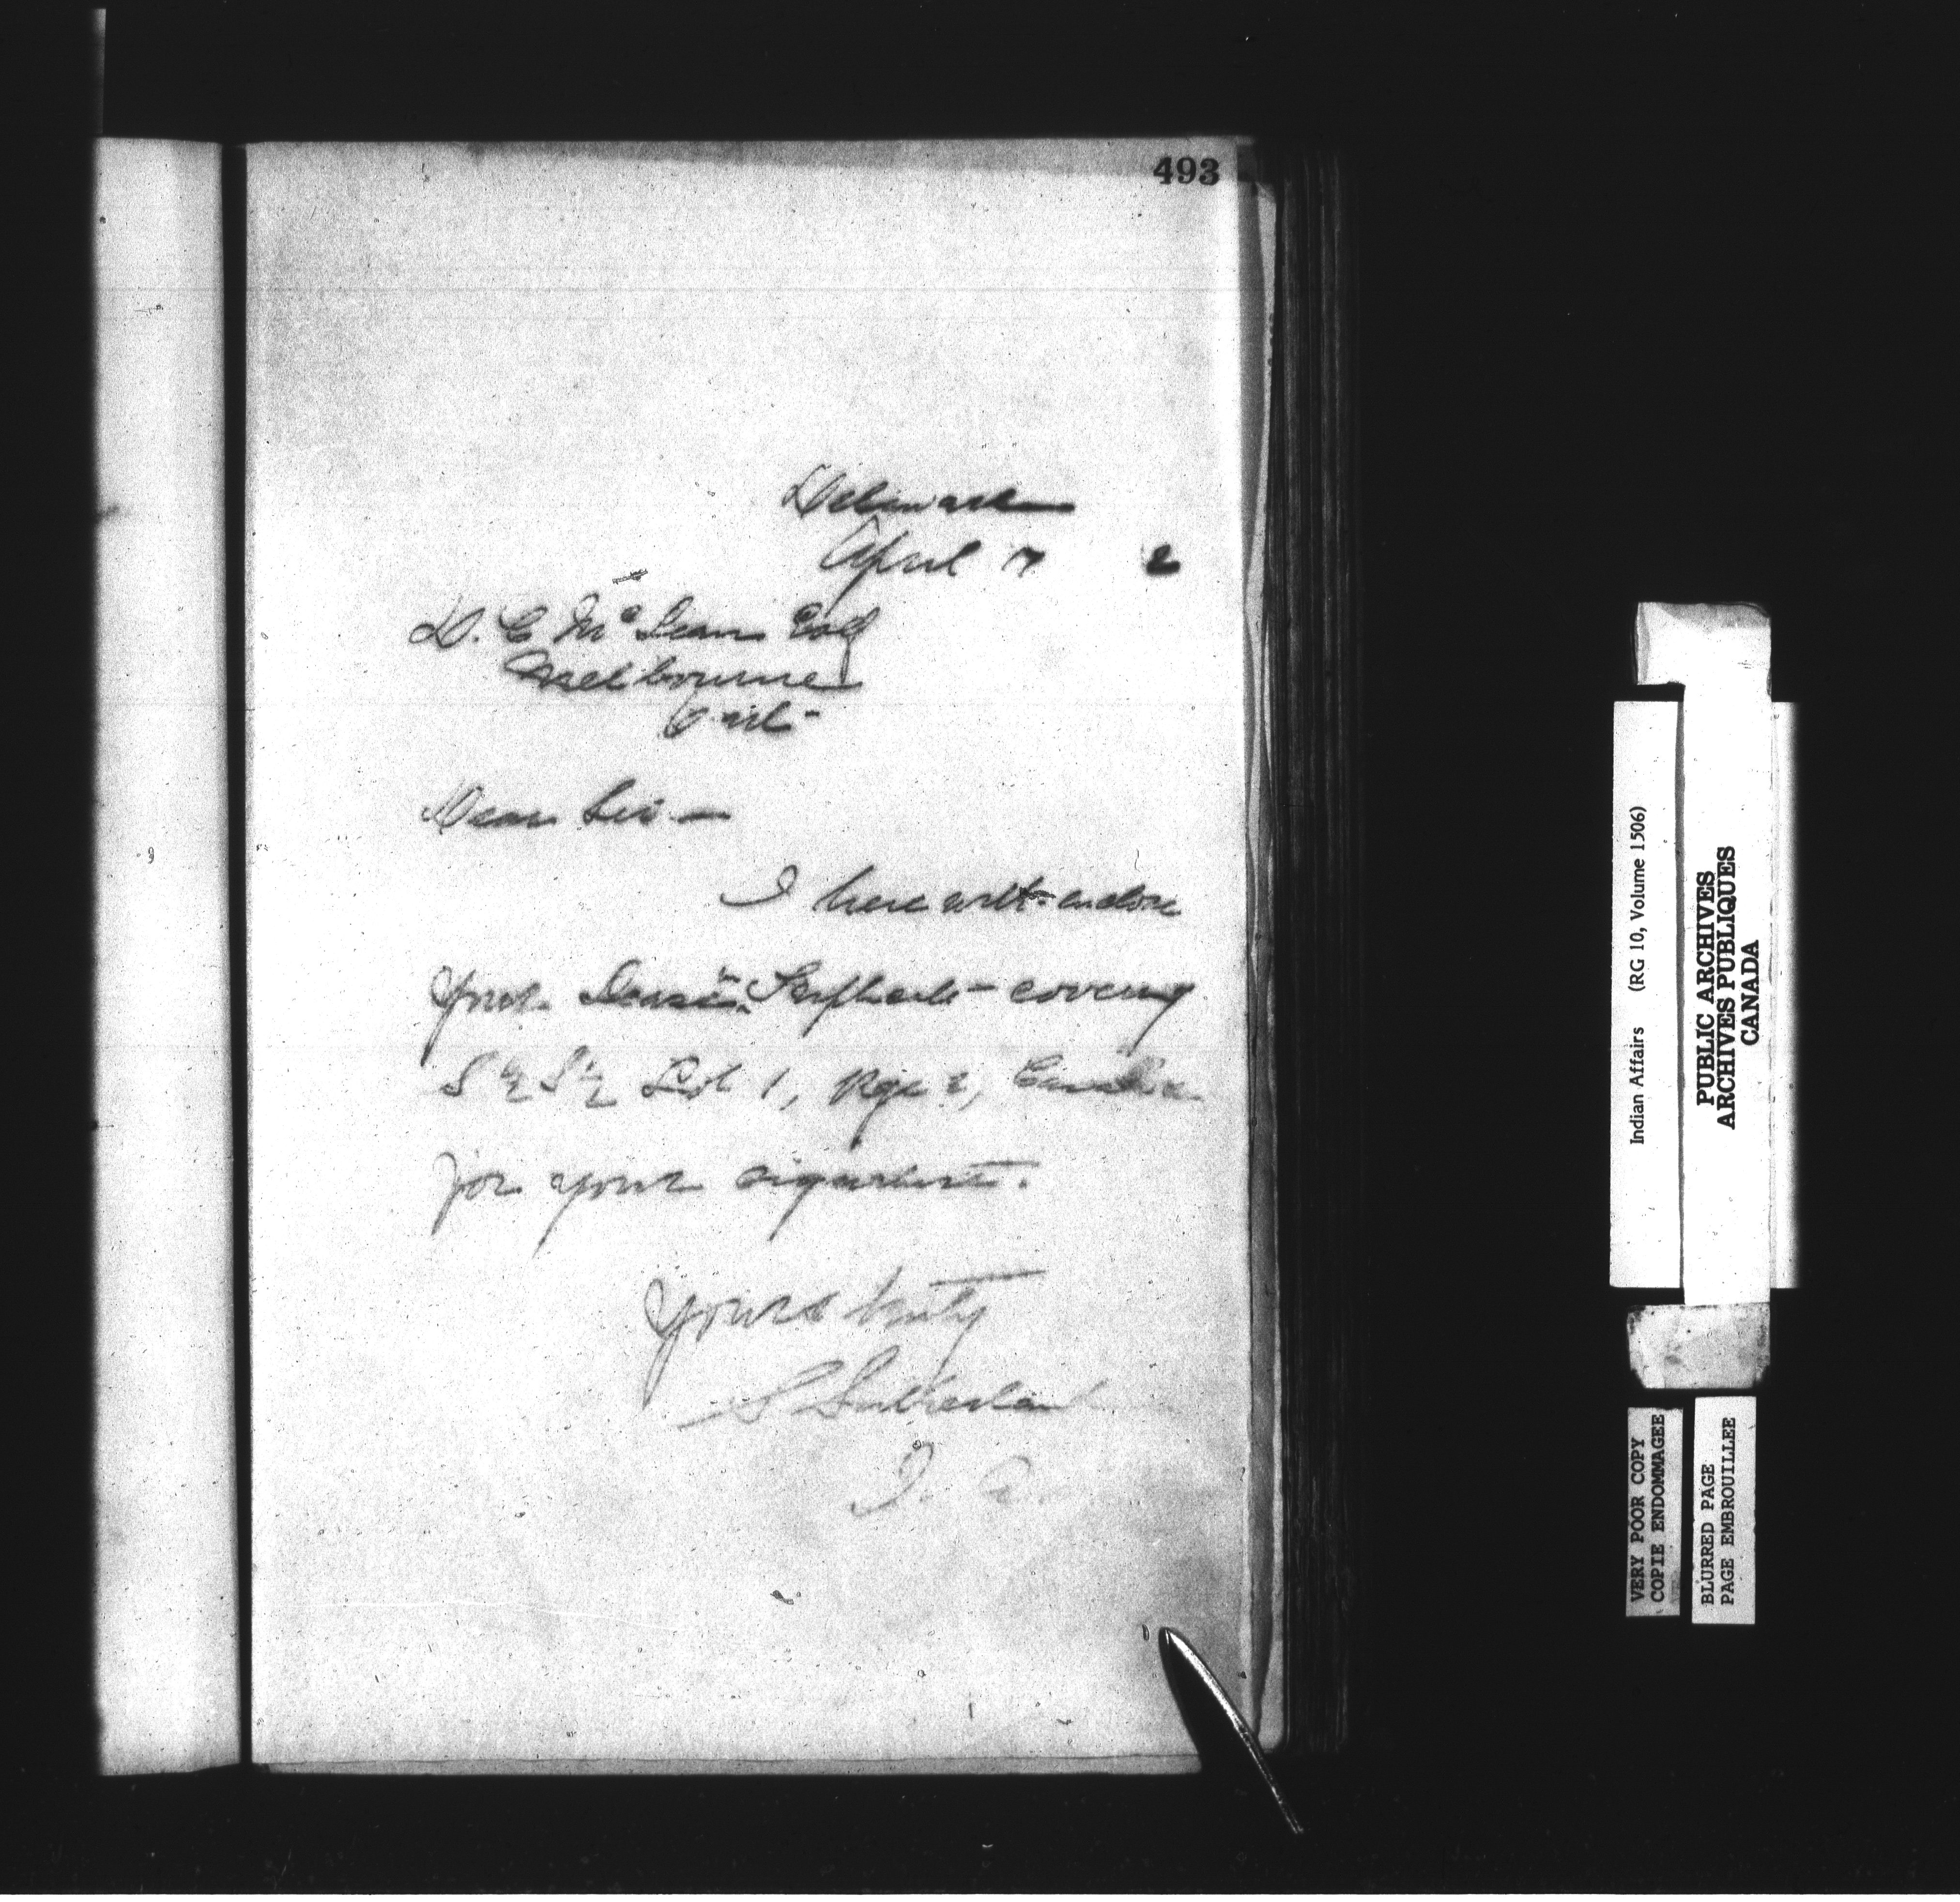 493
Delaware
April 7 2
D. C. McLean Esq
Melbourne
Ont-
Dear Sir -
I herewith enclose
your Lease in Triplicate - covering
S ½ S ½ Lot 1, Rge 2, Caradoc
for your signature.
Yours truly
S Sutherland
I. A.
Indian Affairs (RG 10, Volume 1506)
PUBLIC ARCHIVES
ARCHIVES PUBLIQUES
CANADA
VERY POOR COPY
COPIE ENDOMMAGEE
BLURRED PAGE
PAGE EMBROUILLEE